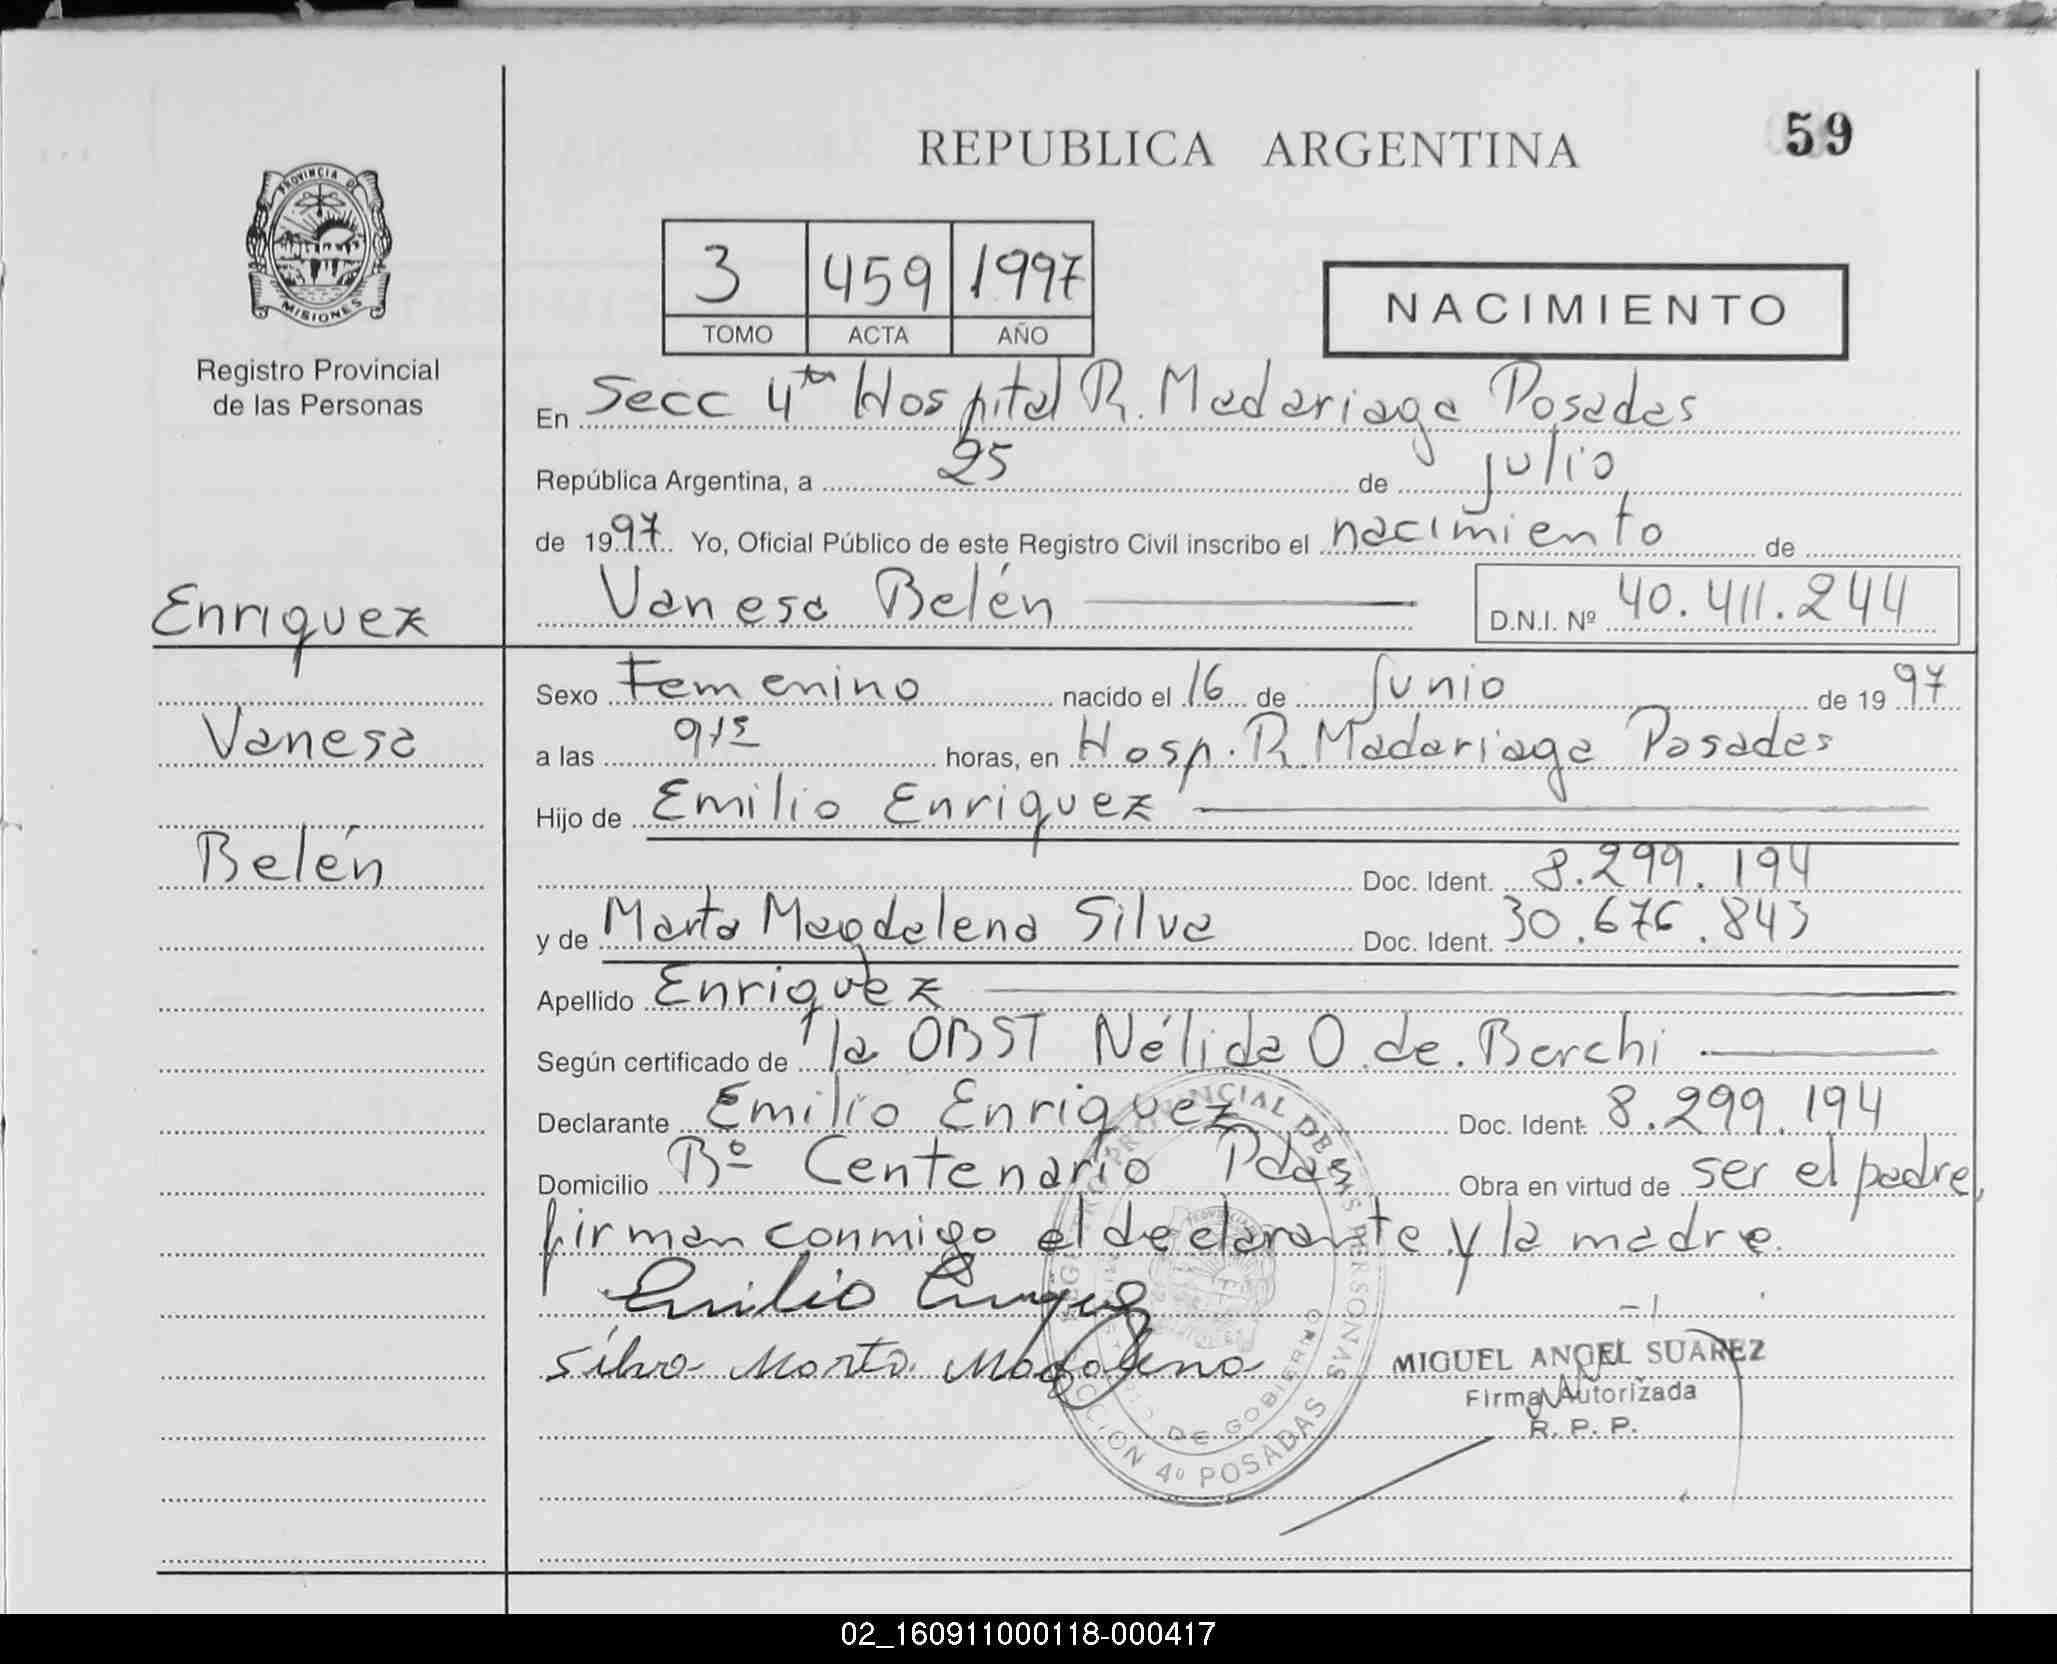 59
REPUBLICA ARGENTINA
PROVINCIA DE
MISIONES
Registro Provincial
de las Personas
3 459 1997
TOMO ACTA AÑO
NACIMIENTO
En Secc 4ta Hospital R. Madariaga Posadas
República Argentina, a 25 de julio
de 1997 Yo, Oficial Público de este Registro Civil inscribo el nacimiento de
Enriquez
Vanesa Belén
D.N.I. Nº 40.411.244
Sexo Femenino nacido el 16 de Junio de 1997
Vanesa
a las 9/15 horas, en Hosp. R. Madariaga Posadas
Hijo de Emilio Enriquez
Belén
Doc. Ident. 8.299.194
y de Marta Magdalena Silva Doc. Ident. 30.676.843
Apellido Enriquez
Según certificado de la OBST Nélida O. de. Berchi
Declarante Emilio Enriquez Doc. Ident. 8.299.194
Domicilio Bº Centenario Pdas Obra en virtud de ser el padre,
firman conmigo el declarante y la madre.
Emilio Enriquez
Silva Marta Magdalena
MIGUEL ANGEL SUAREZ
Firma Autorizada
R. P. P.
REGISTRO PROVINCIAL DE LAS PERSONAS
DE GOBIERNO
SECCION 4º POSADAS
02_160911000118-000417